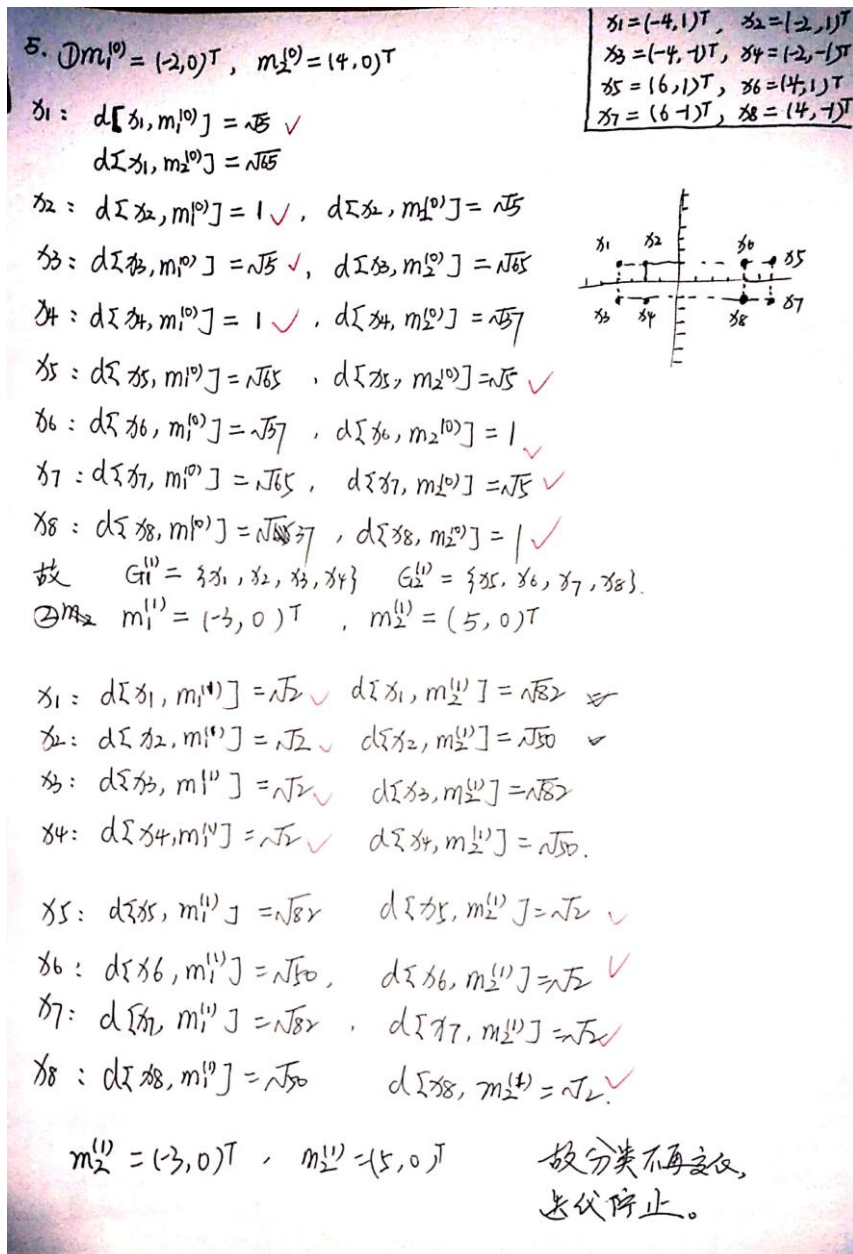 x1=(-4,1)T, x2=(-2,1)T
x3=(-4,-1)T, x4=(-2,-1)T
x5=(6,1)T, x6=(4,1)T
x7=(6-1)T, x8=(4,-1)T
5. ①m₁⁽⁰⁾=(-2,0)T, m₂⁽⁰⁾=(4,0)T
x1: d[x1,m₁⁽⁰⁾]=√5 ✓
d[x1,m₂⁽⁰⁾]=√65
x2: d[x2,m₁⁽⁰⁾]=1 ✓, d[x2,m₂⁽⁰⁾]=√5
x3: d[x3,m₁⁽⁰⁾]=√5 ✓, d[x3,m₂⁽⁰⁾]=√65
x4: d[x4,m₁⁽⁰⁾]=1 ✓, d[x4,m₂⁽⁰⁾]=√37
x5: d[x5,m₁⁽⁰⁾]=√65, d[x5,m₂⁽⁰⁾]=√5 ✓
x6: d[x6,m₁⁽⁰⁾]=√37, d[x6,m₂⁽⁰⁾]=1 ✓
x7: d[x7,m₁⁽⁰⁾]=√65, d[x7,m₂⁽⁰⁾]=√5 ✓
x8: d[x8,m₁⁽⁰⁾]=√37, d[x8,m₂⁽⁰⁾]=1 ✓
x1 x2 x6 x5
x3 x4 x8 x7
故 G₁⁽¹⁾={x1,x2,x3,x4} G₂⁽¹⁾={x5,x6,x7,x8}.
② m₁⁽¹⁾=(-3,0)T, m₂⁽¹⁾=(5,0)T
x1: d[x1,m₁⁽¹⁾]=√2 ✓ d[x1,m₂⁽¹⁾]=√82
x2: d[x2,m₁⁽¹⁾]=√2 ✓ d[x2,m₂⁽¹⁾]=√50
x3: d[x3,m₁⁽¹⁾]=√2 ✓ d[x3,m₂⁽¹⁾]=√82
x4: d[x4,m₁⁽¹⁾]=√2 ✓ d[x4,m₂⁽¹⁾]=√50.
x5: d[x5,m₁⁽¹⁾]=√82 d[x5,m₂⁽¹⁾]=√2 ✓
x6: d[x6,m₁⁽¹⁾]=√50, d[x6,m₂⁽¹⁾]=√2 ✓
x7: d[x7,m₁⁽¹⁾]=√82, d[x7,m₂⁽¹⁾]=√2 ✓
x8: d[x8,m₁⁽¹⁾]=√50 d[x8,m₂⁽¹⁾=√2. ✓
m₂⁽¹⁾=(-3,0)T, m₂⁽¹⁾=(5,0)T
故分类不再变化,
迭代停止。